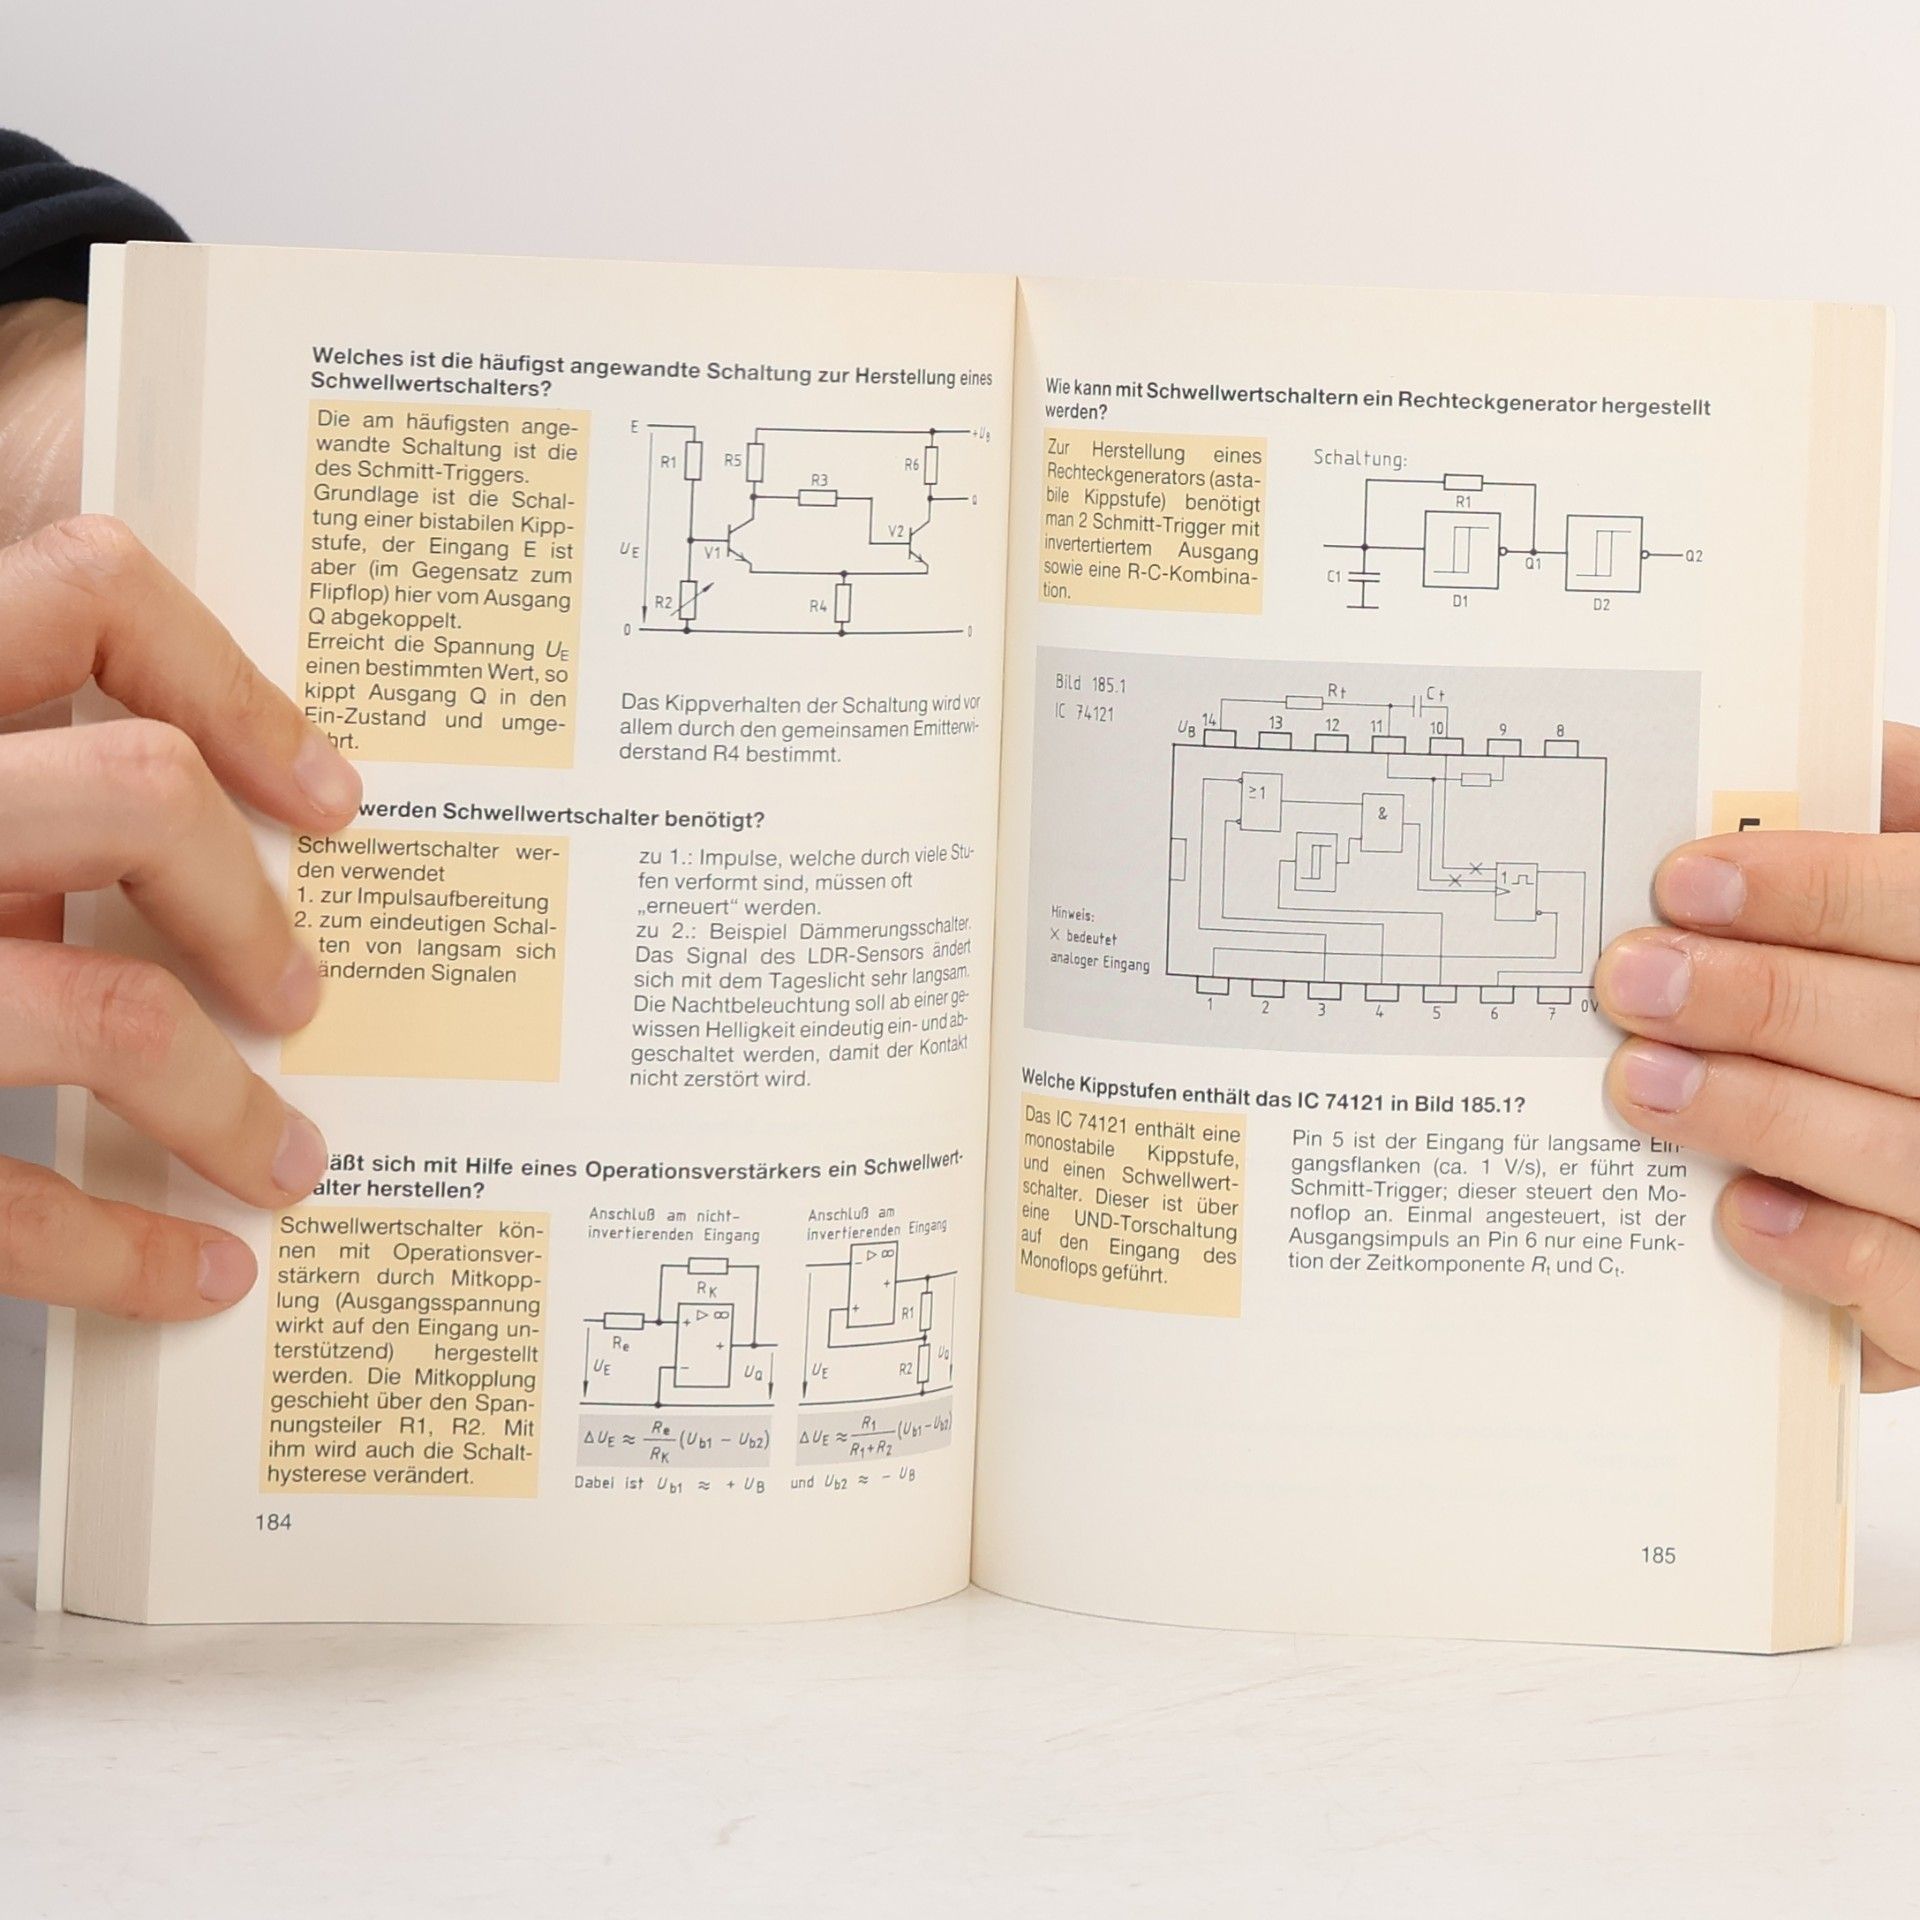 Welches ist die häufigst angewandte Schaltung zur Herstellung eines
Schwellwertschalters?
Die am häufigsten ange-
wandte Schaltung ist die
des Schmitt-Triggers.
Grundlage ist die Schal-
tung einer bistabilen Kipp-
stufe, der Eingang E ist
aber (im Gegensatz zum
Flipflop) hier vom Ausgang
Q abgekoppelt.
Erreicht die Spannung UE
einen bestimmten Wert, so
kippt Ausgang Q in den
Ein-Zustand und umge-
hrt.
E
R1
R5
R3
R6
+UB
Q
UE
V1
V2
R2
R4
0
0
Das Kippverhalten der Schaltung wird vor
allem durch den gemeinsamen Emitterwi-
derstand R4 bestimmt.
werden Schwellwertschalter benötigt?
Schwellwertschalter wer-
den verwendet
1. zur Impulsaufbereitung
2. zum eindeutigen Schal-
ten von langsam sich
ändernden Signalen
zu 1.: Impulse, welche durch viele Stu-
fen verformt sind, müssen oft
„erneuert“ werden.
zu 2.: Beispiel Dämmerungsschalter.
Das Signal des LDR-Sensors ändert
sich mit dem Tageslicht sehr langsam.
Die Nachtbeleuchtung soll ab einer ge-
wissen Helligkeit eindeutig ein- und ab-
geschaltet werden, damit der Kontakt
nicht zerstört wird.
läßt sich mit Hilfe eines Operationsverstärkers ein Schwellwert-
alter herstellen?
Schwellwertschalter kön-
nen mit Operationsver-
stärkern durch Mitkopp-
lung (Ausgangsspannung
wirkt auf den Eingang un-
terstützend) hergestellt
werden. Die Mitkopplung
geschieht über den Span-
nungsteiler R1, R2. Mit
ihm wird auch die Schalt-
hysterese verändert.
Anschluß am nicht-
invertierenden Eingang
RK
Re
+ ▷ ∞
+
−
UE
UQ
ΔUE ≈ Re/RK (Ub1 − Ub2)
Anschluß am
invertierenden Eingang
− ▷ ∞
+
+
R1
R2
UE
UQ
ΔUE ≈ R1/(R1+R2) (Ub1 − Ub2)
Dabei ist Ub1 ≈ + UB und Ub2 ≈ − UB
184
Wie kann mit Schwellwertschaltern ein Rechteckgenerator hergestellt
werden?
Zur Herstellung eines
Rechteckgenerators (asta-
bile Kippstufe) benötigt
man 2 Schmitt-Trigger mit
invertertiertem Ausgang
sowie eine R-C-Kombina-
tion.
Schaltung:
R1
C1
Q1
Q2
D1
D2
Bild 185.1
IC 74121
Rt
Ct
UB 14 13 12 11 10 9 8
≥1
&
1
Hinweis:
X bedeutet
analoger Eingang
1 2 3 4 5 6 7 0V
Welche Kippstufen enthält das IC 74121 in Bild 185.1?
Das IC 74121 enthält eine
monostabile Kippstufe,
und einen Schwellwert-
schalter. Dieser ist über
eine UND-Torschaltung
auf den Eingang des
Monoflops geführt.
Pin 5 ist der Eingang für langsame Ein-
gangsflanken (ca. 1 V/s), er führt zum
Schmitt-Trigger; dieser steuert den Mo-
noflop an. Einmal angesteuert, ist der
Ausgangsimpuls an Pin 6 nur eine Funk-
tion der Zeitkomponente Rt und Ct.
185